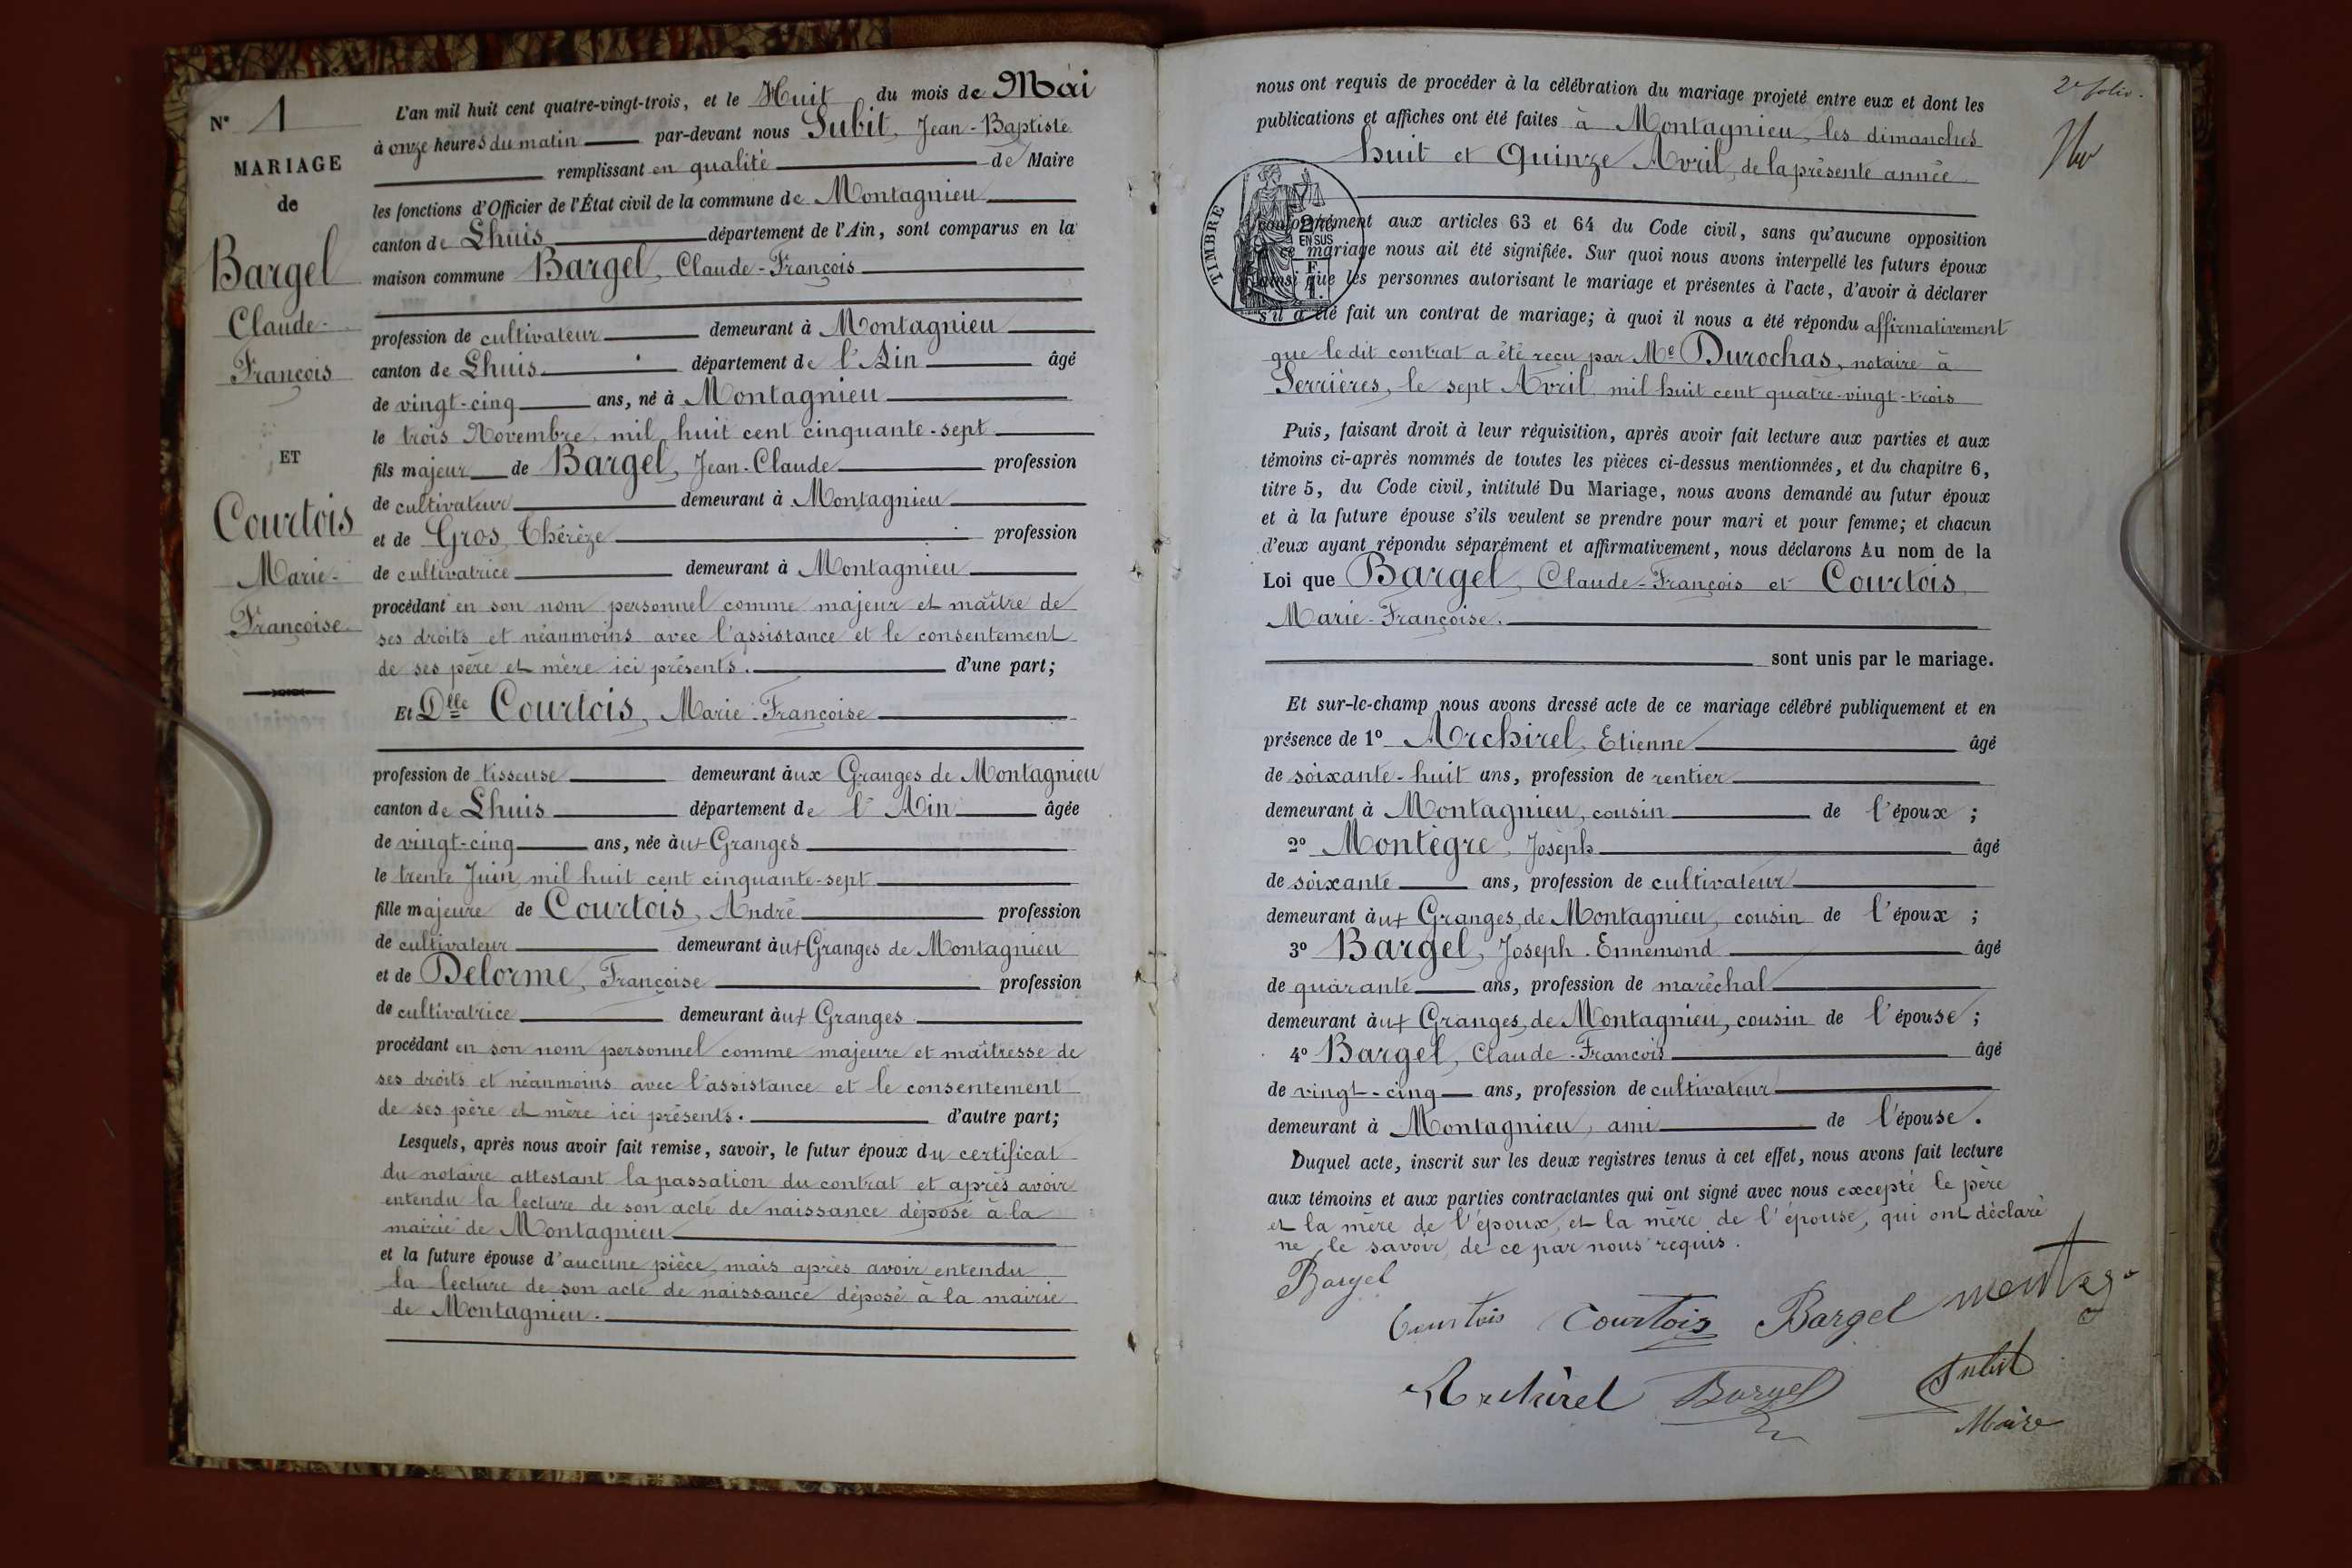 N° 1
MARIAGE
de
Bargel
Claude-
François
ET
Courtois
Marie-
Françoise
L'an mil huit cent quatre-vingt-trois, et le Huit du mois de Mai
à onze heures du matin par-devant nous Subit, Jean-Baptiste
remplissant en qualité de Maire
les fonctions d'Officier de l'État civil de la commune de Montagnieu
canton de Lhuis département de l'Ain, sont comparus en la
maison commune Bargel, Claude-François
profession de cultivateur demeurant à Montagnieu
canton de Lhuis département de l'Ain âgé
de vingt-cinq ans, né à Montagnieu
le trois Novembre mil huit cent cinquante-sept
fils majeur de Bargel, Jean-Claude profession
de cultivateur demeurant à Montagnieu
et de Gros, Thérèze profession
de cultivatrice demeurant à Montagnieu
procédant en son nom personnel comme majeur et maître de
ses droits et néanmoins avec l'assistance et le consentement
de ses père et mère ici présents. d'une part;
Et Dlle Courtois, Marie-Françoise
profession de tisseuse demeurant àux Granges de Montagnieu
canton de Lhuis département de l'Ain âgée
de vingt-cinq ans, née àux Granges
le trente Juin mil huit cent cinquante-sept
fille majeure de Courtois, André profession
de cultivateur demeurant àux Granges de Montagnieu
et de Delorme, Françoise profession
de cultivatrice demeurant àux Granges
procédant en son nom personnel comme majeure et maîtresse de
ses droits et néanmoins avec l'assistance et le consentement
de ses père et mère ici présents. d'autre part;
Lesquels, après nous avoir fait remise, savoir, le futur époux du certificat
du notaire attestant la passation du contrat et après avoir
entendu la lecture de son acte de naissance déposé à la
mairie de Montagnieu
et la future épouse d'aucune pièce, mais après avoir entendu
la lecture de son acte de naissance déposé à la mairie
de Montagnieu.
2e folio.
nous ont requis de procéder à la célébration du mariage projeté entre eux et dont les
publications et affiches ont été faites à Montagnieu, les dimanches
huit et Quinze Avril, de la présente année
TIMBRE
EN SUS
conformément aux articles 63 et 64 du Code civil, sans qu'aucune opposition
à ce mariage nous ait été signifiée. Sur quoi nous avons interpellé les futurs époux
ainsi que les personnes autorisant le mariage et présentes à l'acte, d'avoir à déclarer
s'il a été fait un contrat de mariage; à quoi il nous a été répondu affirmativement
que le dit contrat a été reçu par Me Durochas, notaire à
Serrières, le sept Avril, mil huit cent quatre-vingt-trois
Puis, faisant droit à leur réquisition, après avoir fait lecture aux parties et aux
témoins ci-après nommés de toutes les pièces ci-dessus mentionnées, et du chapitre 6,
titre 5, du Code civil, intitulé Du Mariage, nous avons demandé au futur époux
et à la future épouse s'ils veulent se prendre pour mari et pour femme; et chacun
d'eux ayant répondu séparément et affirmativement, nous déclarons Au nom de la
Loi que Bargel, Claude-François et Courtois
Marie-Françoise.
sont unis par le mariage.
Et sur-le-champ nous avons dressé acte de ce mariage célébré publiquement et en
présence de 1° Archirel, Etienne âgé
de soixante-huit ans, profession de rentier
demeurant à Montagnieu, cousin de l'époux ;
2° Montègre, Joseph âgé
de soixante ans, profession de cultivateur
demeurant àux Granges, de Montagnieu, cousin de l'époux ;
3° Bargel, Joseph-Ennemond âgé
de quarante ans, profession de maréchal
demeurant àux Granges, de Montagnieu, cousin de l'épouse ;
4° Bargel, Claude-François âgé
de vingt-cinq ans, profession de cultivateur
demeurant à Montagnieu, ami de l'épouse.
Duquel acte, inscrit sur les deux registres tenus à cet effet, nous avons fait lecture
aux témoins et aux parties contractantes qui ont signé avec nous excepté le père
et la mère de l'époux, et la mère de l'épouse, qui ont déclaré
ne le savoir, de ce par nous requis.
Bargel
Courtois Courtois Bargel
Archirel Bargel Subit
Maire